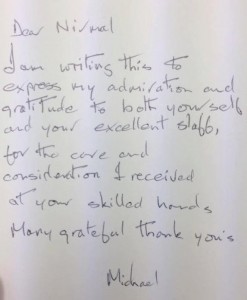 Dear Nirmal
I am writing this to
express my admiration and
gratitude to both yourself
and your excellent staff,
for the care and
consideration I received
at your skilled hands
Many grateful thank you's
Michael